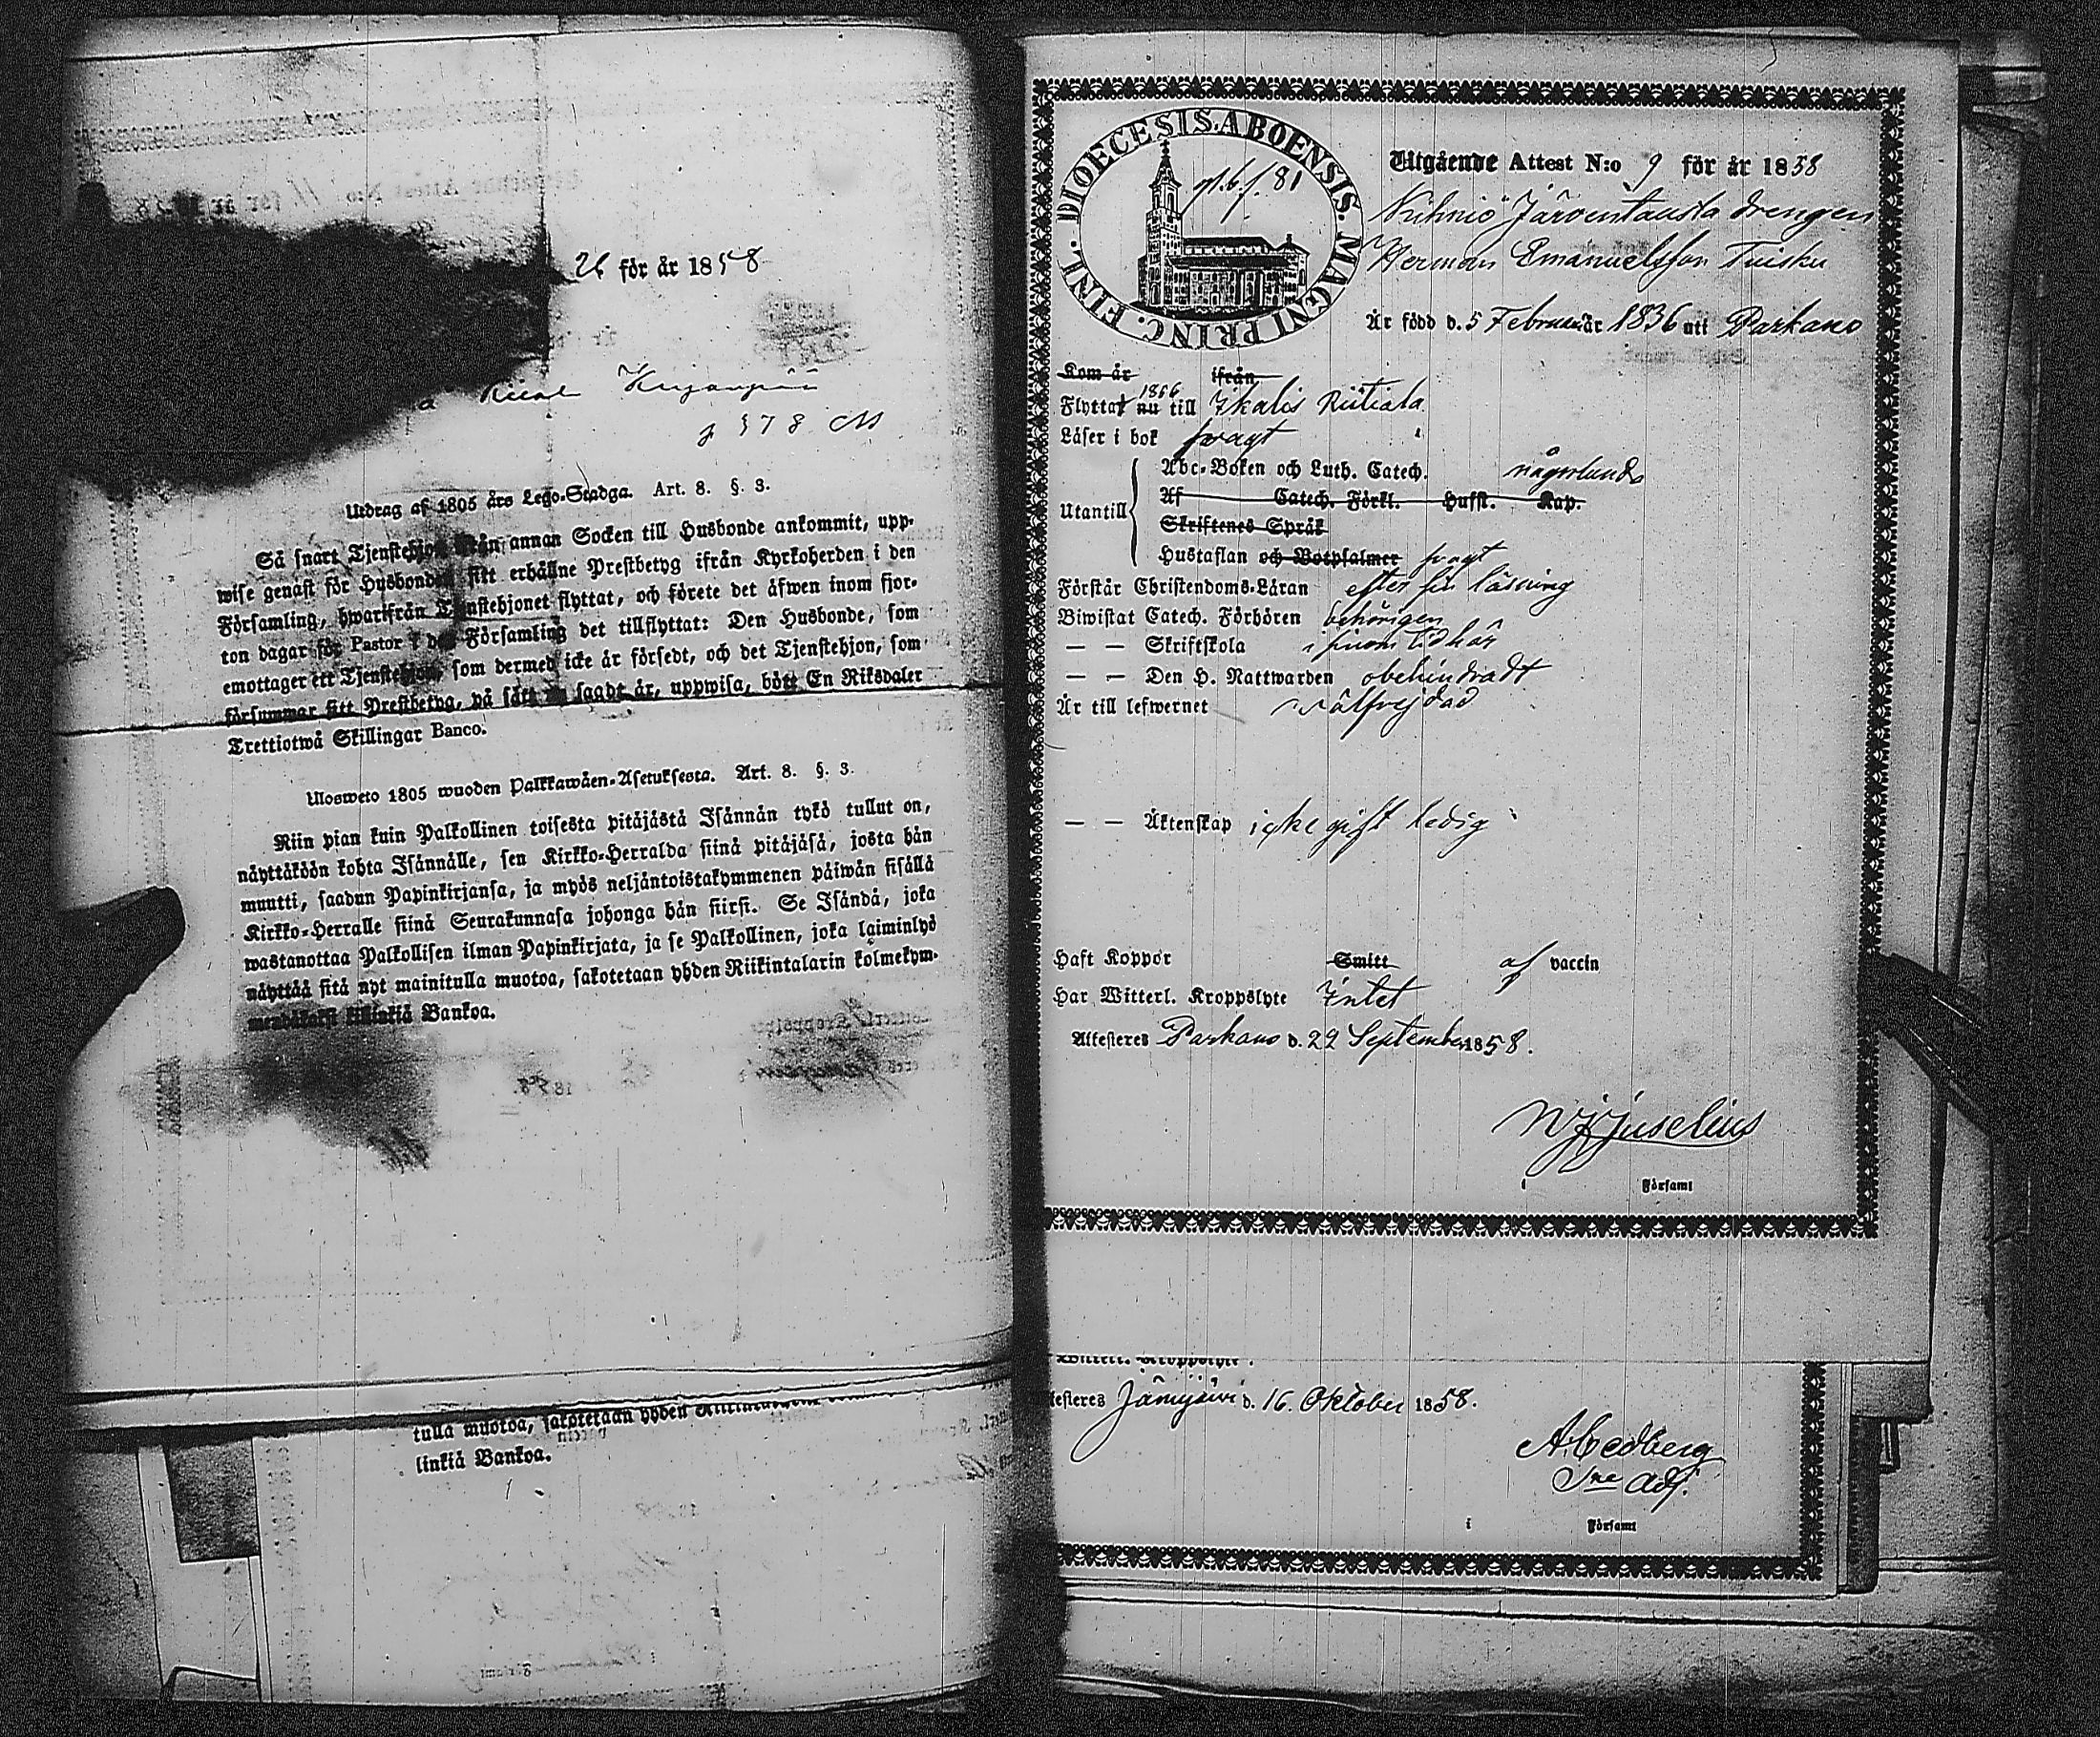 26 för år 1858
p 578
Utdrag af 1805 års Lego-Stadga. Art. 8. §. 3.
Så snart Tjenstehjon ifrån annan Socken till Husbonde ankommit, upp-
wise genast för Husbonden sitt erhållne Prestbetyg ifrån Kyrkoherden i den
Församling, hwarifrån Tjenstehjonet flyttat, och förete det äfwen inom fjor-
ton dagar för Pastor i den Församling det tillflyttat: Den Husbonde, som
emottager ett Tjenstehjon, som dermed icke är försedt, och det Tjenstehjon, som
försummar sitt Prestbetyg, på sätt nu sagdt är, uppwisa, böte En Riksdaler
Trettiotwå Skillingar Banco.
Ulosweto 1805 wuoden Palkkawäen-Asetuksesta. Art. 8. §. 3.
Niin pian kuin Palkollinen toisesta pitäjästä Isännän tykö tullut on,
näyttäköön kohta Isännälle, sen Kirkko-Herralda siinä pitäjäsä, josta hän
muutti, saadun Papinkirjansa, ja myös neljäntoistakymmenen päiwän sisällä
Kirkko-Herralle siinä Seurakunnasa johonga hän siirsi. Se Isändä, joka
wastanottaa Palkollisen ilman Papinkirjata, ja se Palkollinen, joka laiminlyö
näyttää sitä nyt mainitulla muotoa, sakotetaan yhden Riikintalarin kolmekym-
mendäkaksi killinkiä Bankoa.
tulla muotoa, sakotetaan yhden
linkiä Bankoa.
DIOECESIS. ABOENSIS. MAGNI PRINC. FINL.
f. 81
Utgående Attest N:o 9 för år 1858
Kihniö Järventausta drengen
Herman Emanuelsson Tuisku
Är född d. 5 Februari år 1836 uti Parkano
Kom år ifrån
1856
Flyttat nu till Ikalis Riitiala
Läser i bok
Abc-Boken och Luth. Catech. någorlunda
Af Catech. Förkl. Husst. Kap.
Utantill
Skriftenes Språk
Hustaflan och Botpsalmer
Förstår Christendoms-Läran efter sin läsning
Biwistat Catech. Förhören behörigen
— — Skriftskola
— — Den H. Nattwarden obehindradt
Är till lefwernet wälfrejdad
— — Äktenskap icke gift ledig
Haft Koppor Smitt af vaccin
Har Witterl. Kroppslyte Intet
Attesteres Parkano d. 22 September 1858.
Juselius
Församl
Witterl. Kroppslyte
testeres Jämijärvi d. 16. Oktober 1858.
A Cedberg
Adj.
i Församl